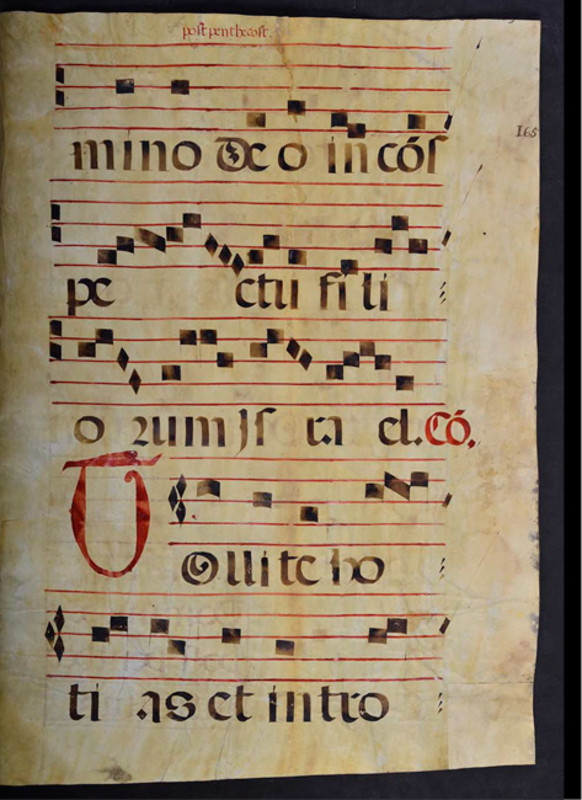 post penthecost.
165
mino deo in cós
pe ctu fi li
o rum Js ra el. Có.
Tollite ho
ti as et intro